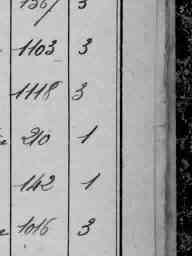 1103 3
1118 3
210 1
142 1
1016 3